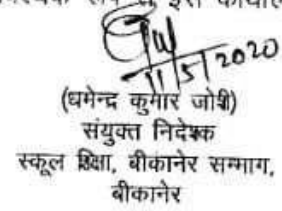 इस कार्याल
11/5/2020
(धमेन्द्र कुमार जोशी)
संयुक्त निदेशक
स्कूल शिक्षा, बीकानेर सम्भाग,
बीकानेर